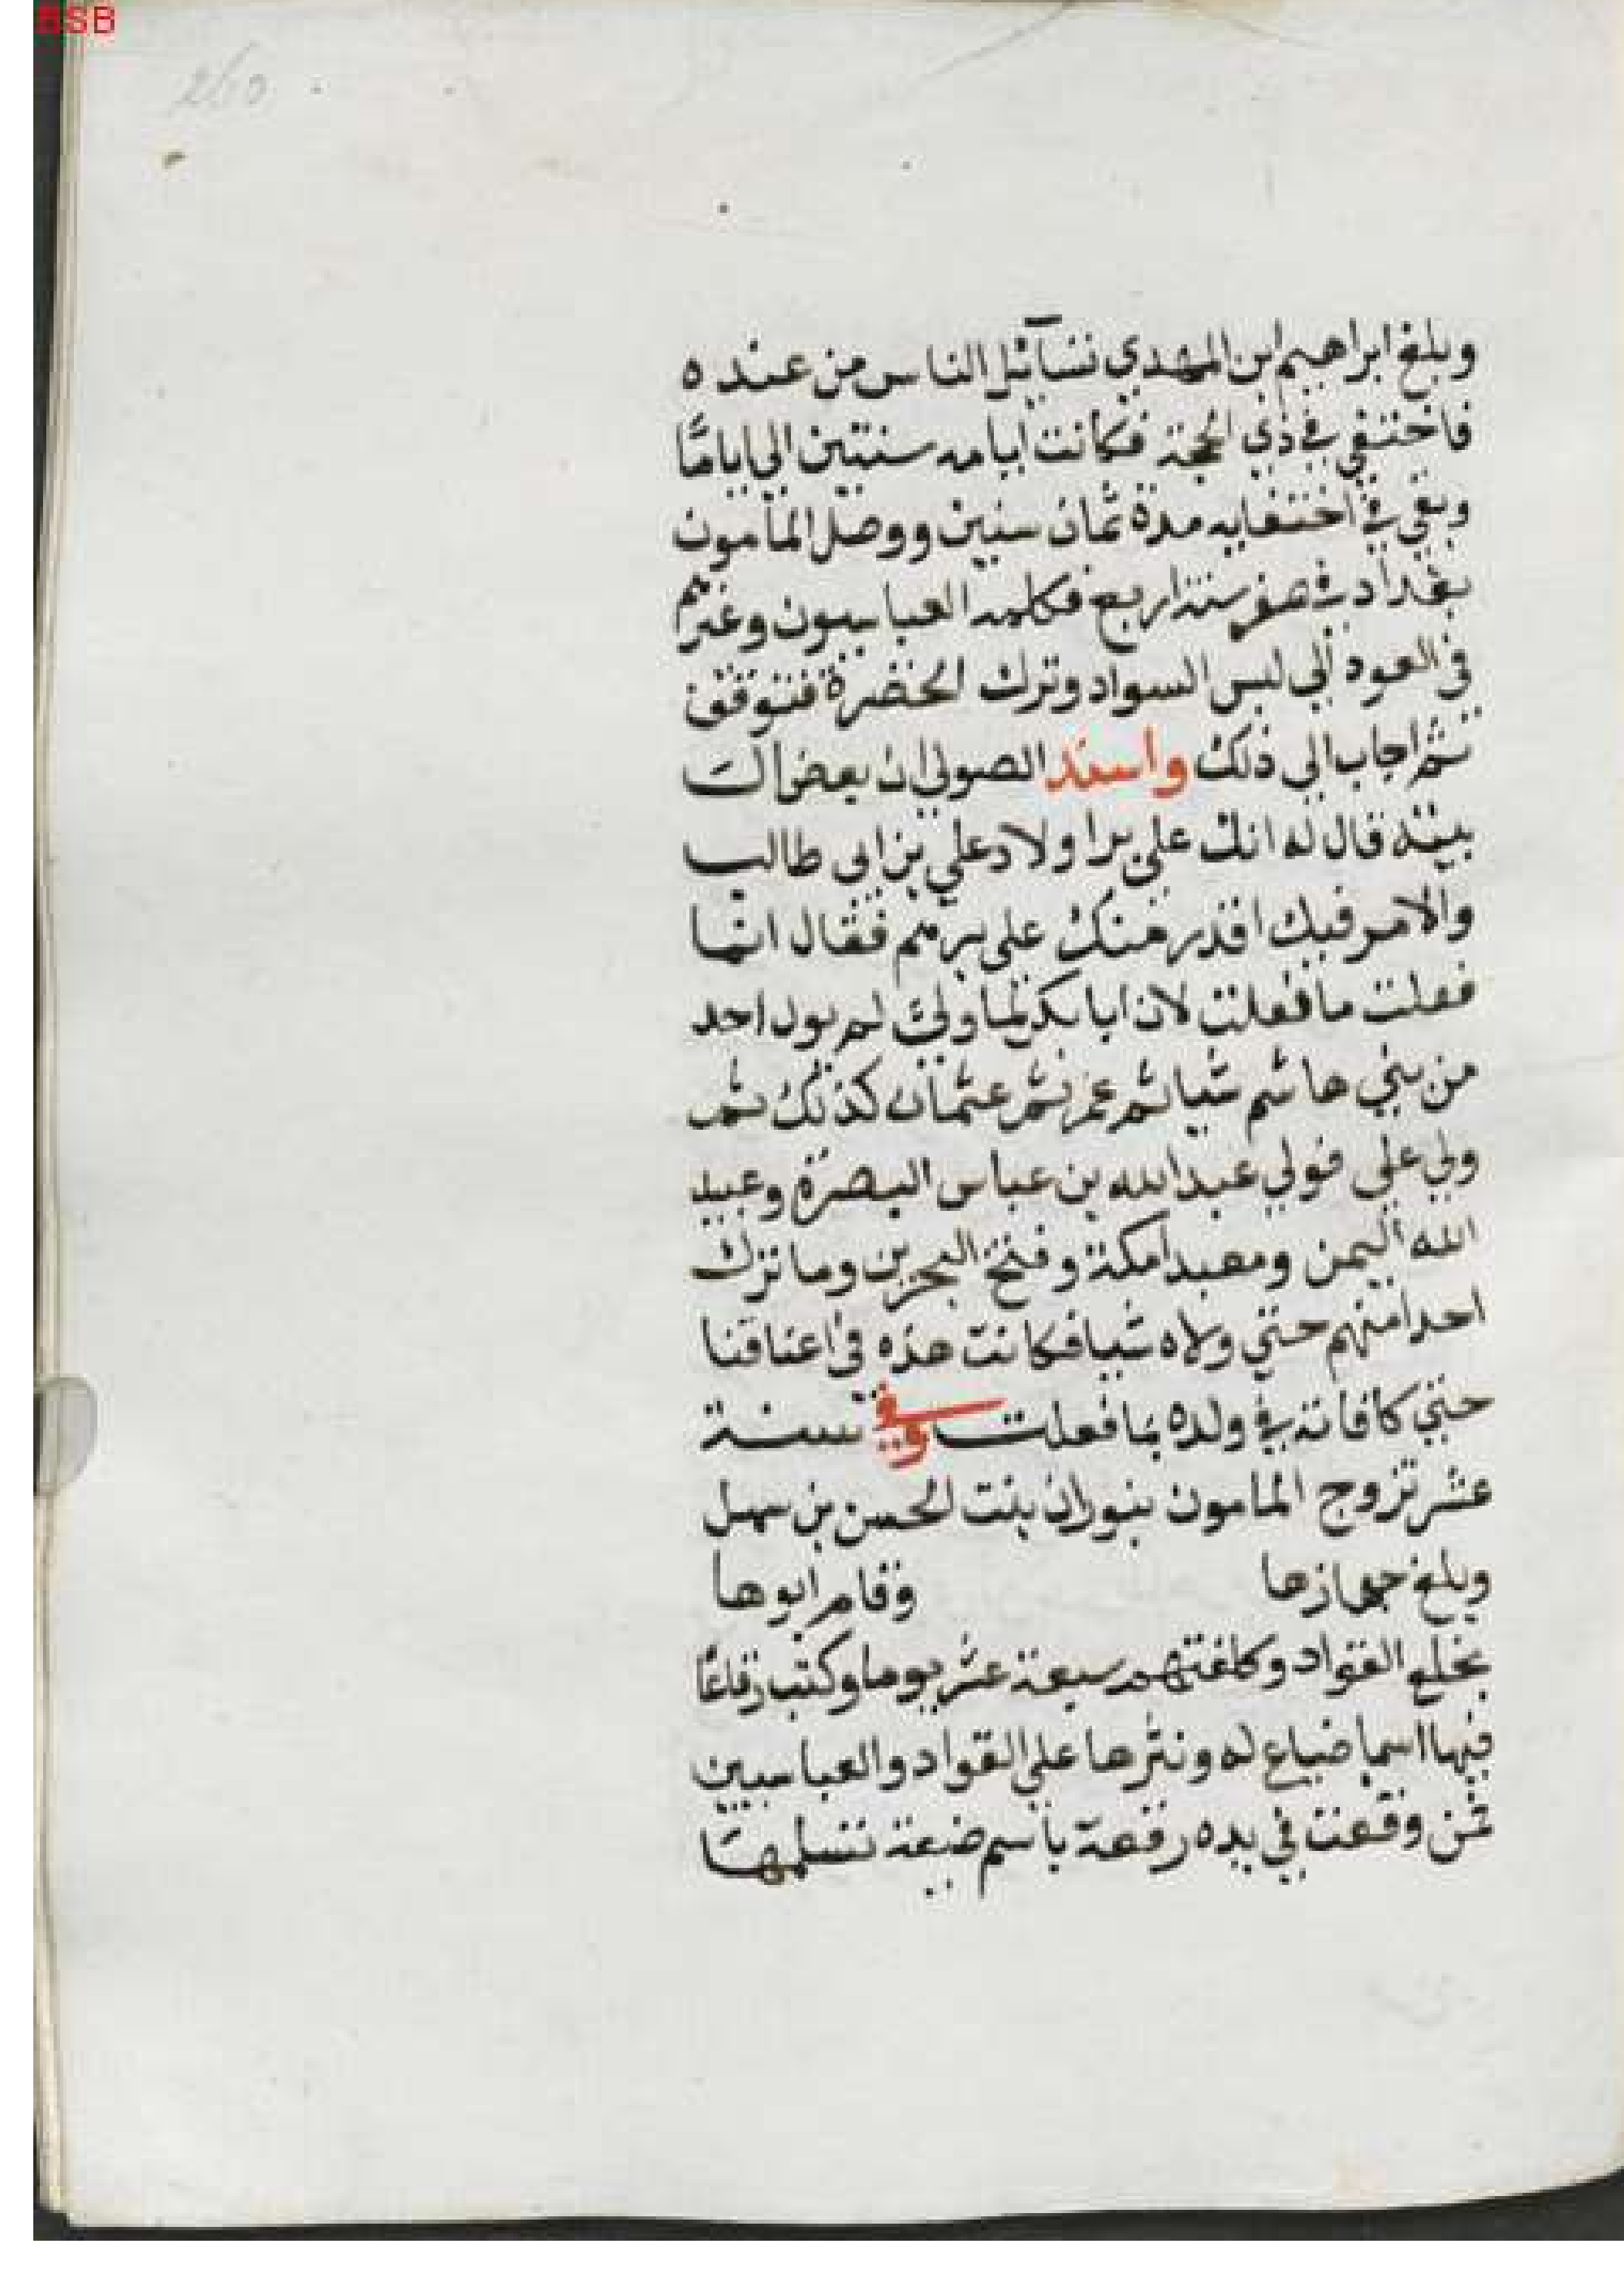 BSB
260
وبلغ ابراهيم ابن المهدي تسآئل الناس من عنده
فاختفي في ذي الحجة فكانت ايامه سنتين الي اياما
وبقي في اختفايه مدة ثمان سنين ووصل المأمون
بغداد في صفر سنة اربع فكلمه العباسيون وغيرهم
في العود الي لبس السواد وترك الخضرة فتوقف
ثم اجاب الي ذلك واسند الصولي ان بعض ال
بيته قال له انك علي بر اولاد علي بن ابي طالب
والامر فيك اقدر منك علي برهم فقال انما
فعلت ما فعلت لان ابا بكر لما ولي لم يول احد
من بني هاشم شيا ثم عمر ثم عثمان كذلك ثم
ولي علي فولي عبد الله بن عباس البصرة وعبيد
الله اليمن ومعبدا مكة وفتح البحرين وما ترك
احدا منهم حتي ولاه شيا فكانت هذه في اعناقنا
حتي كافاته في ولده بما فعلت وفي سنة
عشر تزوج المامون ببوران بنت الحسن بن سهل
وبلغ جهازها وقام ابوها
بخلع القواد وكلفتهم سبعة عشر يوما وكتب رقاعا
فيها اسما ضياع له ونثرها علي القواد والعباسيين
فمن وقعت في يده رقعة باسم ضيعة تسلمها